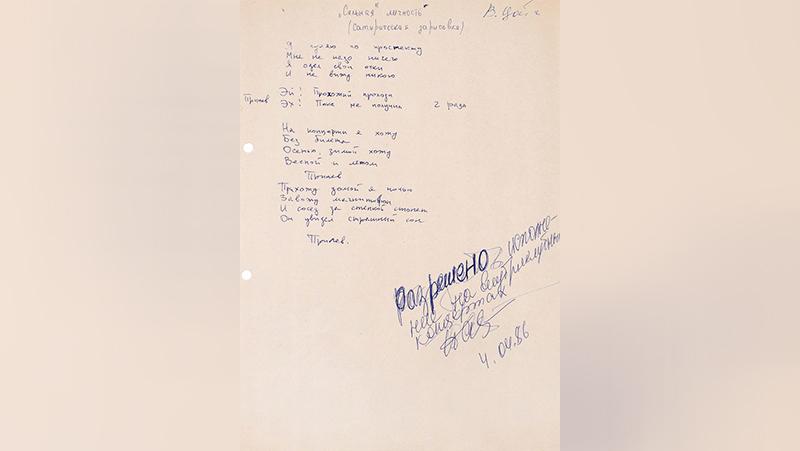 „Сильная" личность"
(сатирическая зарисовка)
В. Цой
Я гуляю по проспекту
Мне не надо ничего
Я одел свои очки
И не вижу никого
Эй! Прохожий проходи
Припев Эх! Пока не получил 2 раза
На концерты я хожу
Без билета
Осенью, зимой хожу
Весной и летом
Припев
Прихожу домой я ночью
Завожу магнитофон
И сосед за стенкой стонет
Он увидел страшный сон
Припев.
Разрешено к исполне-
нию на
концертах
4.04.86